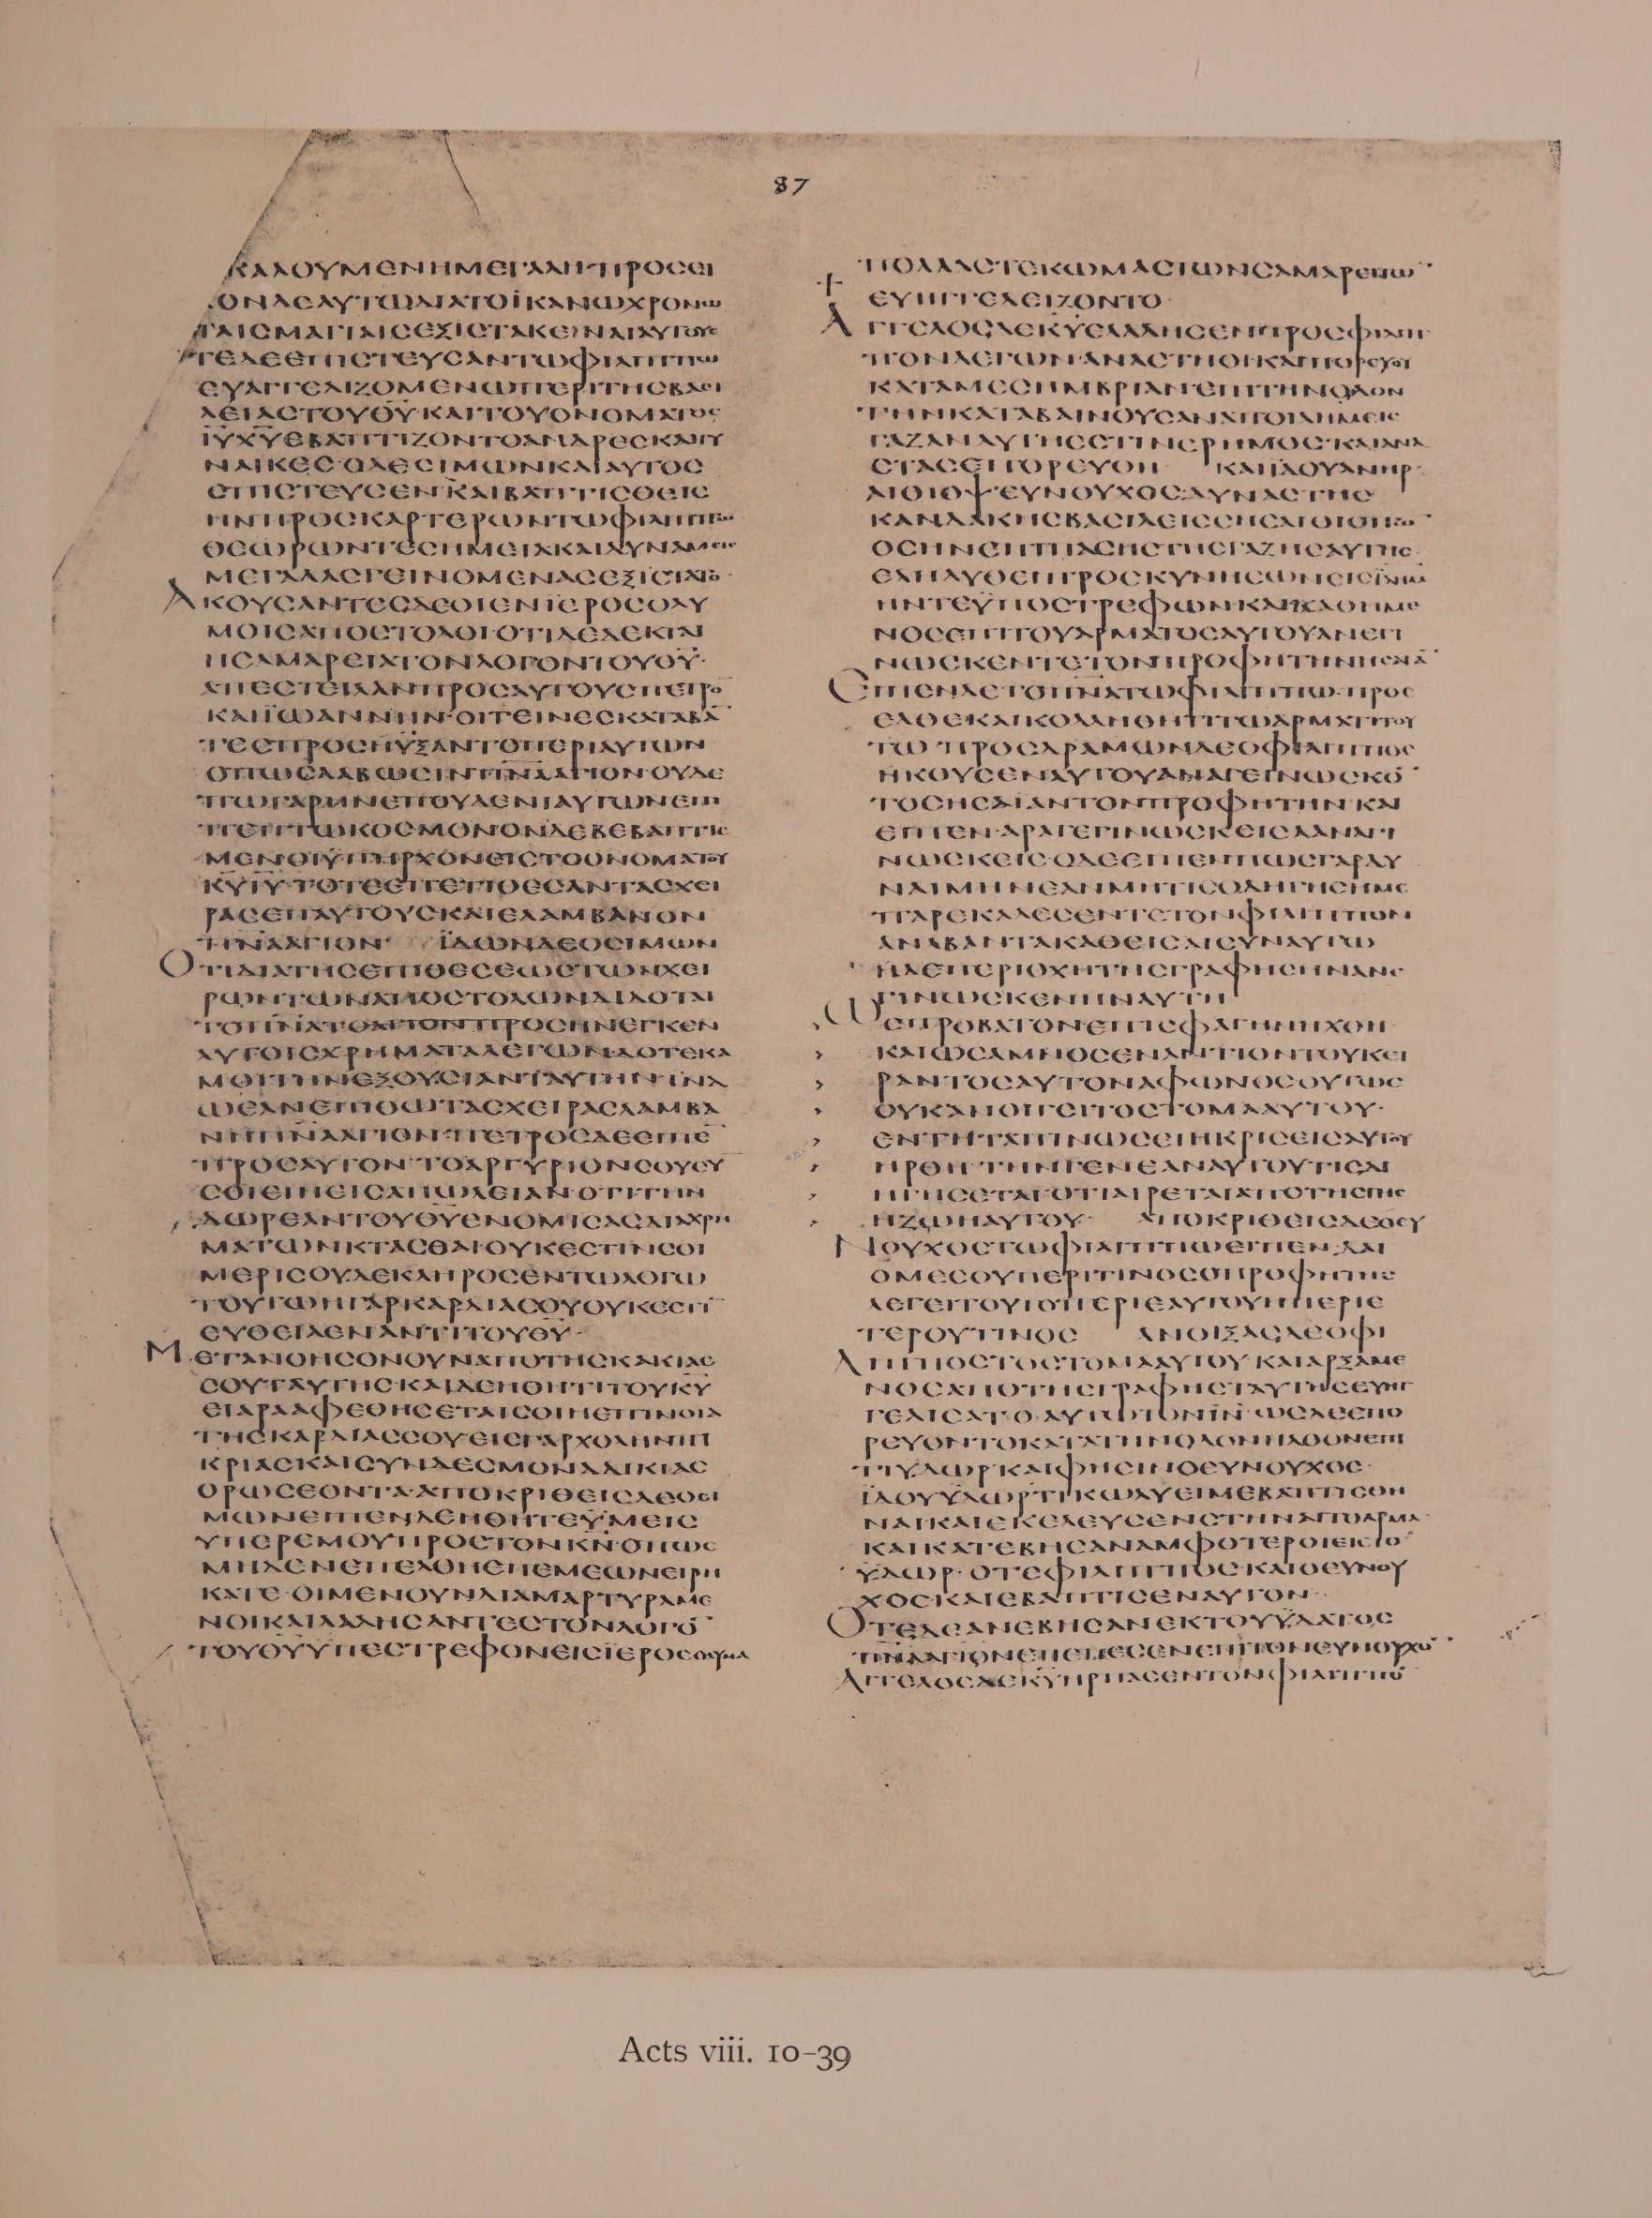 87
ΚΑΛΟΥΜΕΝΗΜΕΓΑΛΗ·ΠΡΟϹΕΙ
ΟΝΔΕΑΥΤΩΔΙΑΤΟΪΚΑΝΩΧΡΟΝΩ
ΤΑΙϹΜΑΓΙΑΙϹΕΞΙϹΤΑΚΕΙΝΑΙΑΥΤΟΥϹ
ΤΕΔΕΕΠΙϹΤΕΥϹΑΝΤΩΦΙΛΙΠΠΩ
ΕΥΑΓΓΕΛΙΖΟΜΕΝΩΠΕΡΙΤΗϹΒΑϹΙ
ΛΕΙΑϹΤΟΥΘ̅Υ̅ΚΑΙΤΟΥΟΝΟΜΑΤΟϹ
Ι̅Υ̅Χ̅Υ̅ΕΒΑΠΤΙΖΟΝΤΟΑΝΔΡΕϹΚΑΙΓΥ
ΝΑΙΚΕϹ·ΟΔΕϹΙΜΩΝΚΑΙΑΥΤΟϹ
ΕΠΙϹΤΕΥϹΕΝ·ΚΑΙΒΑΠΤΙϹΘΕΙϹ
ΗΝΠΡΟϹΚΑΡΤΕΡΩΝΤΩΦΙΛΙΠΠΩ·
ΘΕΩΡΩΝΤΕϹΗΜΕΙΑΚΑΙΔΥΝΑΜΕΙϹ
ΜΕΓΑΛΑϹΓΕΙΝΟΜΕΝΑϹΕΞΙϹΤΑΤΟ·
ΑΚΟΥϹΑΝΤΕϹΔΕΟΙΕΝΪΕΡΟϹΟΛΥ
ΜΟΙϹΑΠΟϹΤΟΛΟΙ·ΟΤΙΔΕΔΕΚΤΑΙ
ΗϹΑΜΑΡΕΙΑΤΟΝΛΟΓΟΝΤΟΥΘ̅Υ̅·
ΑΠΕϹΤΕΙΛΑΝΠΡΟϹΑΥΤΟΥϹΠΕΤΡΟ
ΚΑΙΪΩΑΝΝΗΝ·ΟΙΤΕΙΝΕϹΚΑΤΑΒΑ̅
ΤΕϹΠΡΟϹΗΥΞΑΝΤΟΠΕΡΙΑΥΤΩΝ
ΟΠΩϹΛΑΒΩϹΙΝΠ̅Ν̅Α̅ΑΓΙΟΝ·ΟΥΔΕ
ΠΩΓΑΡΗΝΕΠΟΥΔΕΝΙΑΥΤΩΝΕΠΙ
ΠΕΠΤΩΚΟϹΜΟΝΟΝΔΕΒΕΒΑΠΤΙϹ
ΜΕΝΟΙΫΠΗΡΧΟΝΕΙϹΤΟΟΝΟΜΑΤΟΥ
Κ̅Υ̅Ι̅Υ̅·ΤΟΤΕΕΠΕΤΙΘΕϹΑΝΤΑϹΧΕΙ
ΡΑϹΕΠΑΥΤΟΥϹΚΑΙΕΛΑΜΒΑΝΟΝ
Π̅Ν̅Α̅ΑΓΙΟΝ· ΪΔΩΝΔΕΟϹΙΜΩΝ
ΟΤΙΔΙΑΤΗϹΕΠΙΘΕϹΕΩϹΤΩΝΧΕΙ
ΡΩΝΤΩΝΑΠΟϹΤΟΛΩΝΔΙΔΟΤΑΙ
ΤΟΠ̅Ν̅Α̅ΤΟΑΓΙΟΝΠΡΟϹΗΝΕΓΚΕΝ
ΑΥΤΟΙϹΧΡΗΜΑΤΑΛΕΓΩΝ·ΔΟΤΕΚΑ
ΜΟΙΤΗΝΕΞΟΥϹΙΑΝΤΑΥΤΗΝΪΝΑ
ΩΕΑΝΕΠΙΘΩΤΑϹΧΕΙΡΑϹΛΑΜΒΑ
ΝΗΠ̅Ν̅Α̅ΑΓΙΟΝ·ΠΕΤΡΟϹΔΕΕΙΠΕ̅
ΠΡΟϹΑΥΤΟΝ·ΤΟΑΡΓΥΡΙΟΝϹΟΥϹΥ̅
ϹΟΙΕΙΗΕΙϹΑΠΩΛΕΙΑΝ·ΟΤΙΤΗΝ
ΔΩΡΕΑΝΤΟΥΘ̅Υ̅ΕΝΟΜΙϹΑϹΔΙΑΧΡΗ
ΜΑΤΩΝΚΤΑϹΘΑΙ·ΟΥΚΕϹΤΙΝϹΟΙ
ΜΕΡΙϹΟΥΔΕΚΛΗΡΟϹΕΝΤΩΛΟΓΩ
ΤΟΥΤΩΗΓΑΡΚΑΡΔΙΑϹΟΥΟΥΚΕϹΤΙ̅
ΕΥΘΕΙΑΕΝΑΝΤΙΤΟΥΘ̅Υ̅·
ΜΕΤΑΝΟΗϹΟΝΟΥΝΑΠΟΤΗϹΚΑΚΙΑϹ
ϹΟΥΤΑΥΤΗϹΚΑΙΔΕΗΘΗΤΙΤΟΥΚ̅Υ̅
ΕΙΑΡΑΑΦΕΘΗϹΕΤΑΙϹΟΙΗΕΠΙΝΟΙΑ
ΤΗϹΚΑΡΔΙΑϹϹΟΥ·ΕΙϹΓΑΡΧΟΛΗΝΠΙ
ΚΡΙΑϹΚΑΙϹΥΝΔΕϹΜΟΝΑΔΙΚΙΑϹ
ΟΡΩϹΕΟΝΤΑ·ΑΠΟΚΡΙΘΕΙϹΔΕΟϹΙ
ΜΩΝΕΙΠΕΝΔΕΗΘΗΤΕΫΜΕΙϹ
ΥΠΕΡΕΜΟΥΠΡΟϹΤΟΝΚ̅Ν̅·ΟΠΩϹ
ΜΗΔΕΝΕΠΕΛΘΗΕΠΕΜΕΩΝΕΙΡΗ
ΚΑΤΕ·ΟΙΜΕΝΟΥΝΔΙΑΜΑΡΤΥΡΑΜΕ
ΝΟΙΚΑΙΛΑΛΗϹΑΝΤΕϹΤΟΝΛΟΓΟ̅
ΤΟΥΘ̅Υ̅ΥΠΕϹΤΡΕΦΟΝΕΙϹΪΕΡΟϹΟΛΥΜΑ
ΠΟΛΛΑϹΤΕΚΩΜΑϹΤΩΝϹΑΜΑΡΕΙΤΩ̅
ΕΥΗΓΓΕΛΕΙΖΟΝΤΟ·
ΑΓΓΕΛΟϹΔΕΚ̅Υ̅ΕΛΑΛΗϹΕΝΠΡΟϹΦΙΛΙΠ
ΠΟΝΛΕΓΩΝ·ΑΝΑϹΤΗΘΙ·ΚΑΙΠΟΡΕΥΟΥ
ΚΑΤΑΜΕϹΗΜΒΡΙΑΝ·ΕΠΙΤΗΝΟΔΟΝ
ΤΗΝΚΑΤΑΒΑΙΝΟΥϹΑΝΑΠΟΙΛΗΜΕΙϹ
ΓΑΖΑΝΑΥΤΗΕϹΤΙΝΕΡΗΜΟϹ·ΚΑΙΑΝΑ
ϹΤΑϹΕΠΟΡΕΥΘΗ· ΚΑΙΪΔΟΥΑΝΗΡ
ΑΙΘΙΟΨΕΥΝΟΥΧΟϹΔΥΝΑϹΤΗϹ
ΚΑΝΔΑΚΗϹΒΑϹΙΛΕΙϹϹΗϹΑΙΘΙΟΠΩ̅
ΟϹΗΝΕΠΙΠΑϹΗϹΤΗϹΓΑΖΗϹΑΥΤΗϹ·
ΕΛΗΛΥΘΕΙΠΡΟϹΚΥΝΗϹΩΝΕΙϹΪΛΗΜ
ΗΝΤΕΫΠΟϹΤΡΕΦΩΝΚΑΙΚΑΘΗΜΕ
ΝΟϹΕΠΙΤΟΥΑΡΜΑΤΟϹΑΥΤΟΥΑΝΕΓΙ
ΝΩϹΚΕΝΤΕΤΟΝΠΡΟΦΗΤΗΝΗϹΑΪΑ̅
ΕΙΠΕΝΔΕΤΟΠ̅Ν̅Α̅ΤΩΦΙΛΙΠΠΩ·ΠΡΟϹ
ΕΛΘΕΚΑΙΚΟΛΛΗΘΗΤΙΤΩΑΡΜΑΤΙΤΟΥ
ΤΩ·ΠΡΟϹΔΡΑΜΩΝΔΕΟΦΙΛΙΠΠΟϹ
ΗΚΟΥϹΕΝΑΥΤΟΥΑΝΑΓΕΙΝΩϹΚΟ̅
ΤΟϹΗϹΑΙΑΝΤΟΝΠΡΟΦΗΤΗΝΚΑΙ
ΕΙΠΕΝ·ΑΡΑΓΕΓΙΝΩϹΚΕΙϹΑΑΝΑΓΙ
ΝΩϹΚΕΙϹ·ΟΔΕΕΙΠΕΝΠΩϹΓΑΡΔΥ
ΝΑΙΜΗΝΕΑΝΜΗΤΙϹΟΔΗΓΗϹΗΜΕ
ΠΑΡΕΚΑΛΕϹΕΝΤΕΤΟΝΦΙΛΙΠΠΟΝ
ΑΝΑΒΑΝΤΑΚΑΘΕΙϹΑΙϹΥΝΑΥΤΩ
ΗΔΕΠΕΡΙΟΧΗΤΗϹΓΡΑΦΗϹΗΝΑΝΕ
ΓΙΝΩϹΚΕΝΗΝΑΥΤΗ
ΩϹΠΡΟΒΑΤΟΝΕΠΙϹΦΑΓΗΝΗΧΘΗ·
ΚΑΙΩϹΑΜΝΟϹΕΝΑΝΤΙΟΝΤΟΥΚΕΙ
ΡΑΝΤΟϹΑΥΤΟΝΑΦΩΝΟϹΟΥΤΩϹ
ΟΥΚΑΝΟΙΓΕΙΤΟϹΤΟΜΑΑΥΤΟΥ·
ΕΝΤΗΤΑΠΙΝΩϹΕΙΗΚΡΙϹΕΙϹΑΥΤΟΥ
ΗΡΘΗ·ΤΗΝΓΕΝΕΑΝΑΥΤΟΥΤΙϹΔΙ
ΗΓΗϹΕΤΑΙ·ΟΤΙΑΙΡΕΤΑΙΑΠΟΤΗϹΓΗϹ
ΗΖΩΗΑΥΤΟΥ· ΑΠΟΚΡΙΘΕΙϹΔΕΟΕΥ
ΝΟΥΧΟϹΤΩΦΙΛΙΠΠΩΕΙΠΕΝ·ΔΑΙ
ΟΜΕϹΟΥΠΕΡΙΤΙΝΟϹΟΠΡΟΦΗΤΗϹ
ΛΕΓΕΙΤΟΥΤΟΠΕΡΙΕΑΥΤΟΥΗΠΕΡΙΕ
ΤΕΡΟΥΤΙΝΟϹ ΑΝΟΙΞΑϹΔΕΟΦΙ
ΛΙΠΠΟϹΤΟϹΤΟΜΑΑΥΤΟΥΚΑΙΑΡΞΑΜΕ
ΝΟϹΑΠΟΤΗϹΓΡΑΦΗϹΤΑΥΤΗϹΕΥΗΓ
ΓΕΛΙϹΑΤΟΑΥΤΩΤΟΝΙ̅Ν̅·ΩϹΔΕΕΠΟ
ΡΕΥΟΝΤΟΚΑΤΑΤΗΝΟΔΟΝΗΛΘΟΝΕΠΙ
ΤΙΫΔΩΡΚΑΙΦΗϹΙΝΟΕΥΝΟΥΧΟϹ·
ΪΔΟΥΫΔΩΡΤΙΚΩΛΥΕΙΜΕΒΑΠΤΙϹΘΗ
ΝΑΙΚΑΙΕΚΕΛΕΥϹΕΝϹΤΗΝΑΙΤΟΑΡΜΑ·
ΚΑΙΚΑΤΕΒΗϹΑΝΑΜΦΟΤΕΡΟΙΕΙϹΤΟ
ΫΔΩΡ·ΟΤΕΦΙΛΙΠΠΟϹΚΑΙΟΕΥΝΟΥ
ΧΟϹΚΑΙΕΒΑΠΤΙϹΕΝΑΥΤΟΝ·
ΟΤΕΔΕΑΝΕΒΗϹΑΝΕΚΤΟΥΫΔΑΤΟϹ
Π̅Ν̅Α̅ΑΓΙΟΝΕΠΕΠΕϹΕΝΕΠΙΤΟΝΕΥΝΟΥΧΟ̅
ΑΓΓΕΛΟϹΔΕΚ̅Υ̅ΗΡΠΑϹΕΝΤΟΝΦΙΛΙΠΠΟ̅
Acts viii. 10–39